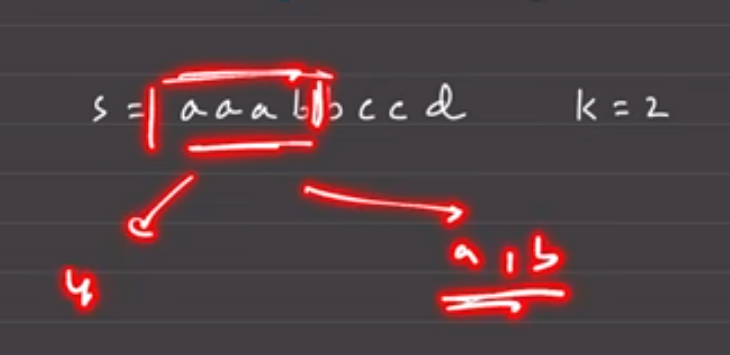 s = aaabbccd k = 2
4 a, b